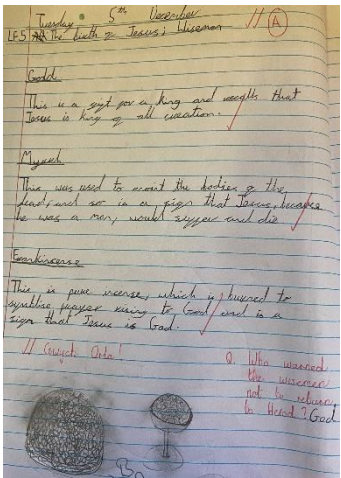 Tuesday 5th December
// A
LF5 The birth of Jesus; Wiseman
Gold
This is a gift for a king and that
Jesus is king of all creation.
Myrrh
This, was used to anoint the bodies of the
dead, and so is a sign that Jesus, because
he was a man, would suffer and die
Frankincense
This is pure incense, which is burned to
symbolise prayer rising to God, and is a
sign that Jesus is God.
//
Q. Who warned
the wisemen
not to return
to Herod? God